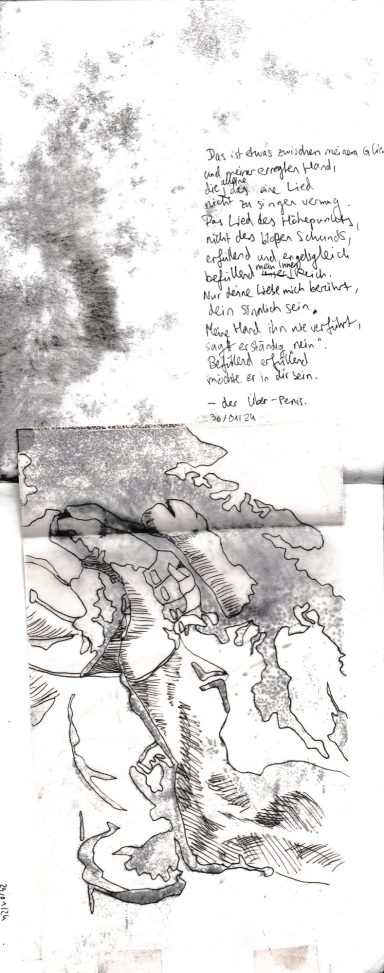 Das ist etwas zwischen meinem Glück
und meiner erregten Hand,
die alleine das eine Lied
nicht zu singen vermag.
Das Lied des Höhepunkts,
nicht des bloßen Schunds,
erfüllend und engelsgleich
befüllend mein innerst Reich.
Nur deine Liebe mich berührt,
dein sinnlich sein.
Meine Hand ihn nie verführt,
sagt er ständig "nein".
Befüllend erfüllend
möchte er in dir sein.
- der Über-Penis.
30/01/24
29/01/24